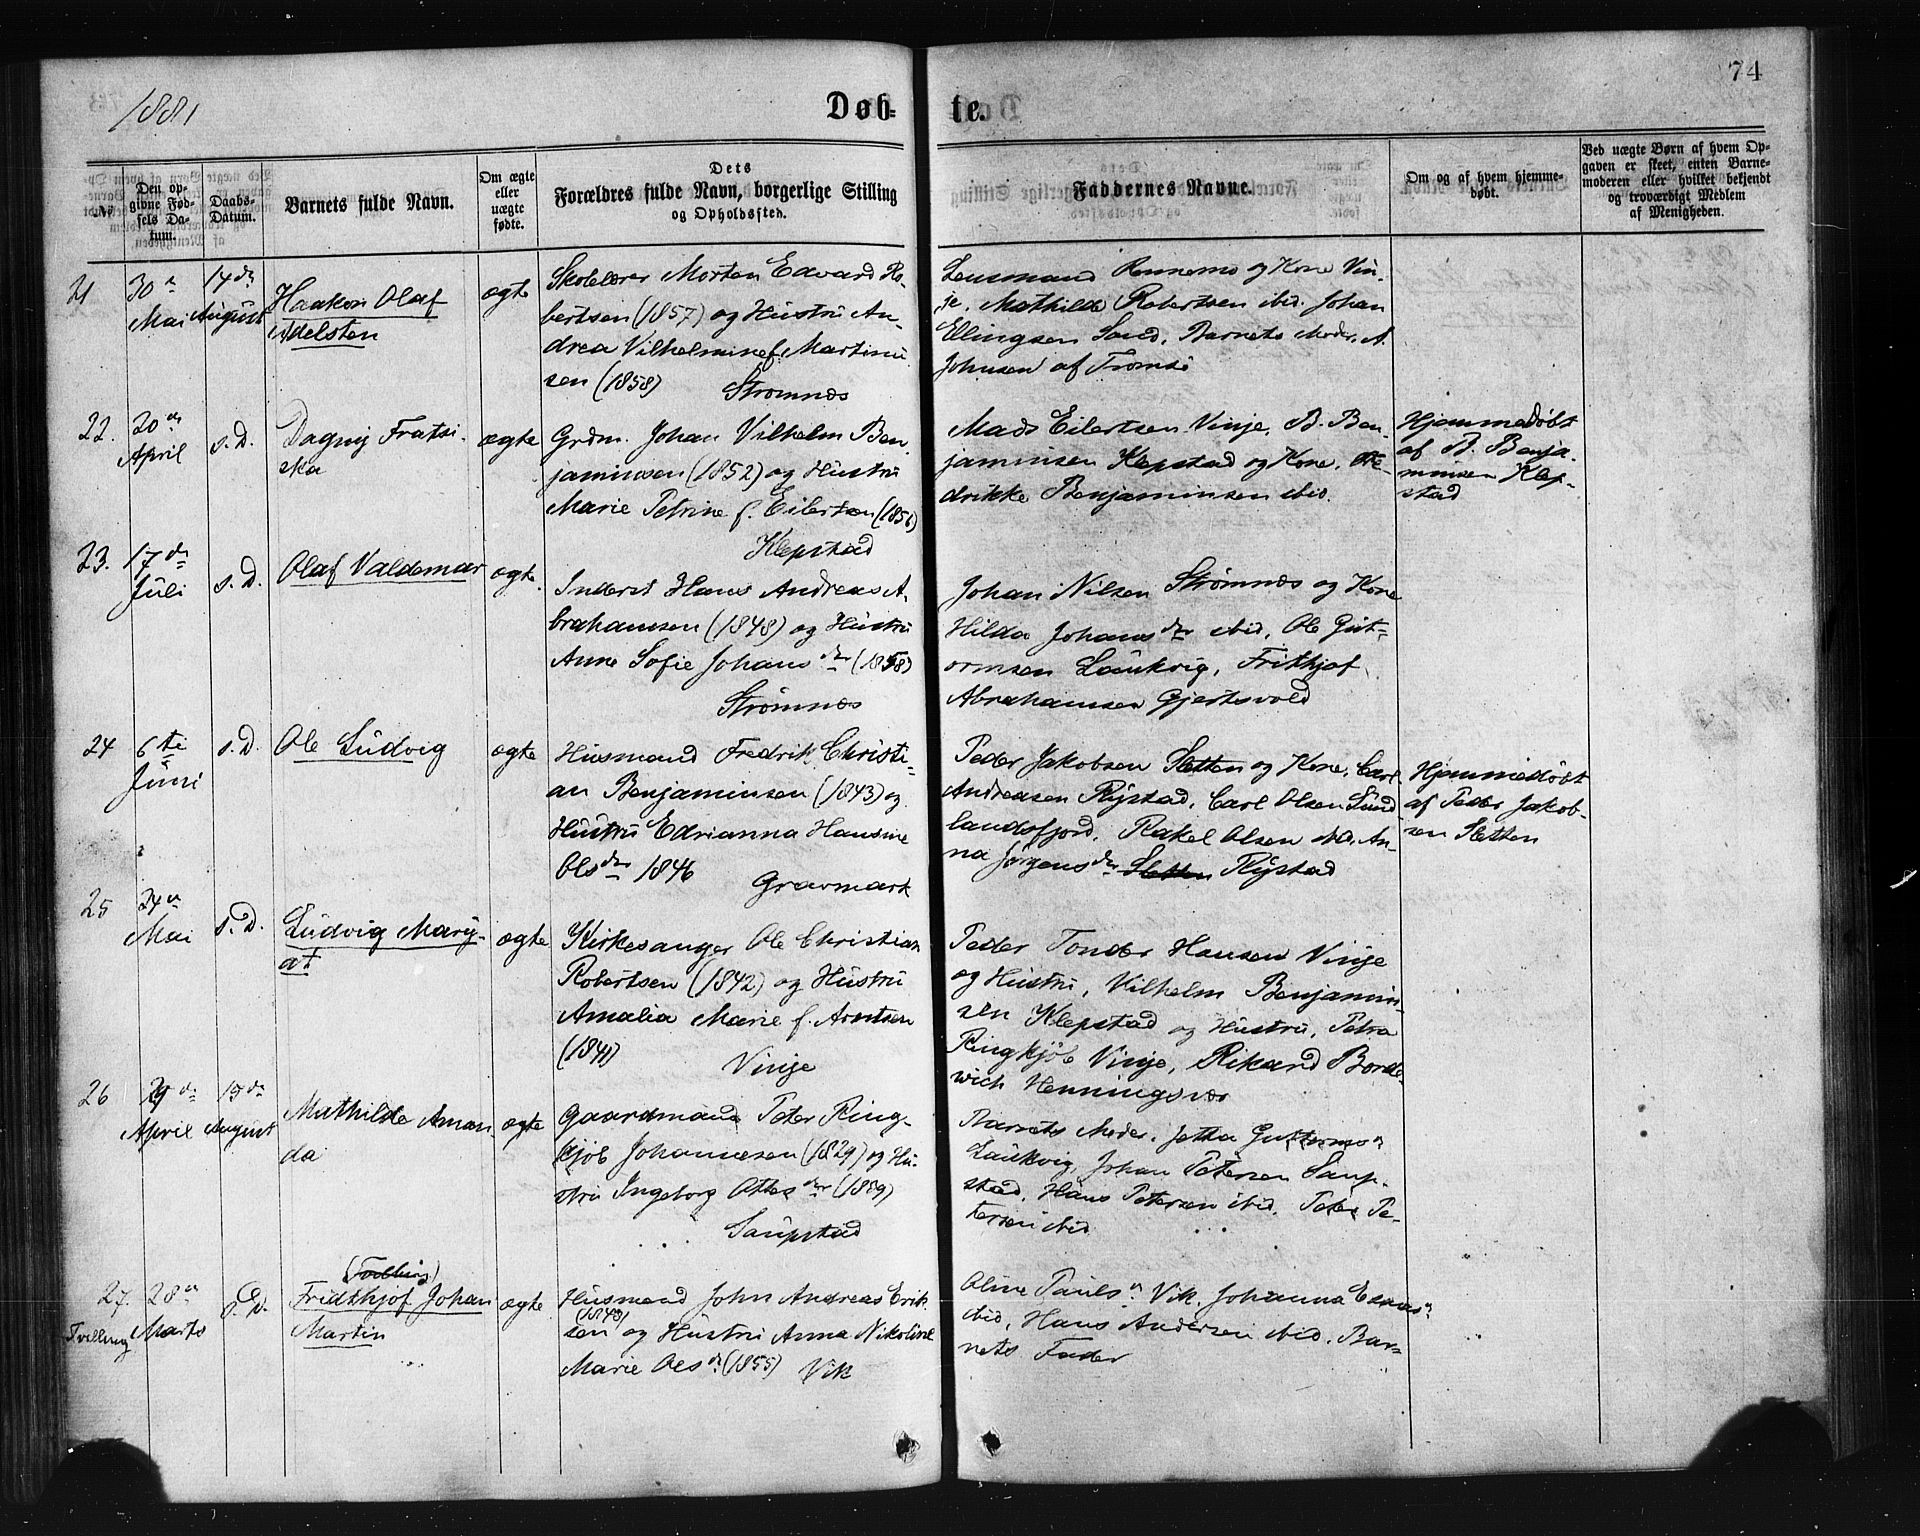 74
1881
Døb-
te.
No
Den op-
givne Fød-
sels Da-
tum.
Daabs-
Datum.
Barnets fulde Navn.
Om ægte
eller
uægte
fødte.
Dets
Forældres fulde Navn, borgerlige Stilling
og Opholdssted.
Faddernes Navne.
Om og af hvem hjemme-
døbt.
Ved uægte Børn af hvem Op-
gaven er skeet, enten Barne-
moderen eller hvilket bekjendt
og troværdigt Medlem
af Menigheden.
21
30te
Mai
14de
August
Haakon Olaf
Adelsten
ægte
Skolelærer Morten Edvard Ro-
bertsen (1857) og Hustru An-
drea Vilhelmine f. Martinu
sen (1858)
Strømnæs
Lensmand Rennemo og Kone Vin-
je. Mathilde Robertsen ibid. Johan
Ellingsen Sand. Barnets Moder. A.
Johnsen af Tromsö
22.
20de
April
s. D.
Dagny Fratsi-
ska
ægte
Grdm. Johan Vilhelm Ben-
jaminsen (1852) og Hustru
Marie Petrine f. Eilertsen (1856)
Klepstad
Mads Eilertsen Vinje, B. Ben-
jaminsen Klepstad og Kone. Fre-
drikke Benjaminsen ibid.
Hjemmedøbt
af B. Benja-
minsen Klep-
stad
23.
17de
Juli
s. D.
Olaf Valdemar
ægte.
Inderst Hans Andreas A-
brahamsen (1848) og Hustru
Anne Sofie Johansdr (1858)
Strømnæs
Johan Nilsen Strømnæs og Kone
Hilda Johansdr ibid, Ole Gut-
ormsen Laukvig, Frithjof
Abrahamsen Gjertsvold
24
6te
Juni
s. D.
Ole Ludvig
ægte
Husmand Fredrik Christi-
an Benjaminsen (1843) og
Hustru Edrianna Hansine
Olsdr 1846
Gravmark
Peder Jakobsen Sletten og Kone, Carl
Andreasen Rystad, Carl Olsen Sund
landsfjord, Rakel Olsen ibid. An-
na Jørgensdr Sletten Rystad
Hjemmedøbt
af Peder Jakob-
sen Sletten
25
24de
Mai
s. D.
Ludvig Mary-
at
ægte
Kirkesanger Ole Christian
Robertsen (1842) og Hustru
Amalia Marie f. Arntsen
(1841)
Vinje
Peder Tonder Hansen Vinje
og Hustru, Vilhelm Benjamin-
sen Klepstad og Hustru, Petra
Ringkjöb Vinje, Rikard Borde-
wich Henningsvær
26
29de
April
15de
August
Mathilde Aman-
da
ægte
Gaardmand Peter Ring-
kjöb Johannesen (1829) og Hu-
stru Ingeborg Ottesdr
Saupstad
Barnets Moder. Jetta Guttormsn
Laukvig, Johan Petersen Saup-
stad, Hans Petersen ibid. Peter Pe-
tersen ibid
27.
Tvilling
28de
Marts
s. D.
(Tvilling)
Fridthjof Johan
Martin
ægte
Husmand John Andreas Erik-
sen og Hustru Anna Nikoline
Marie Olsdr (1855) Vik
Oline Paulsn Vik. Johanna
ibid, Hans Andersen ibid. Bar-
nets Fader